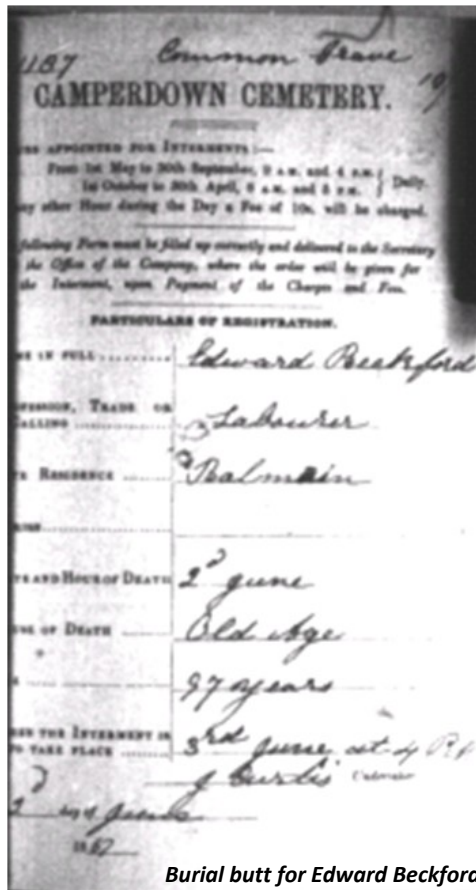 1187 Common Grave
CAMPERDOWN CEMETERY.
APPOINTED FOR INTERMENTS:—
From 1st May to 30th September, 9 A.M. and 4 P.M.
1st October to 30th April, 8 A.M. and 5 P.M. } Daily.
any other Hour during the Day a Fee of 10s. will be charged.
following Form must be filled up correctly and delivered to the Secretary
the Office of the Company, where the order will be given for
the Interment, upon Payment of the Charges and Fees.
PARTICULARS OF REGISTRATION.
IN FULL Edward Beckford
TRADE OR
CALLING Labourer
RESIDENCE Balmain
AND HOUR OF DEATH 2d June
OF DEATH Old Age
97 years
THE INTERMENT IS
TO TAKE PLACE 3rd June at 4 P.
J Curtis
day of June
1867
Burial butt for Edward Beckford